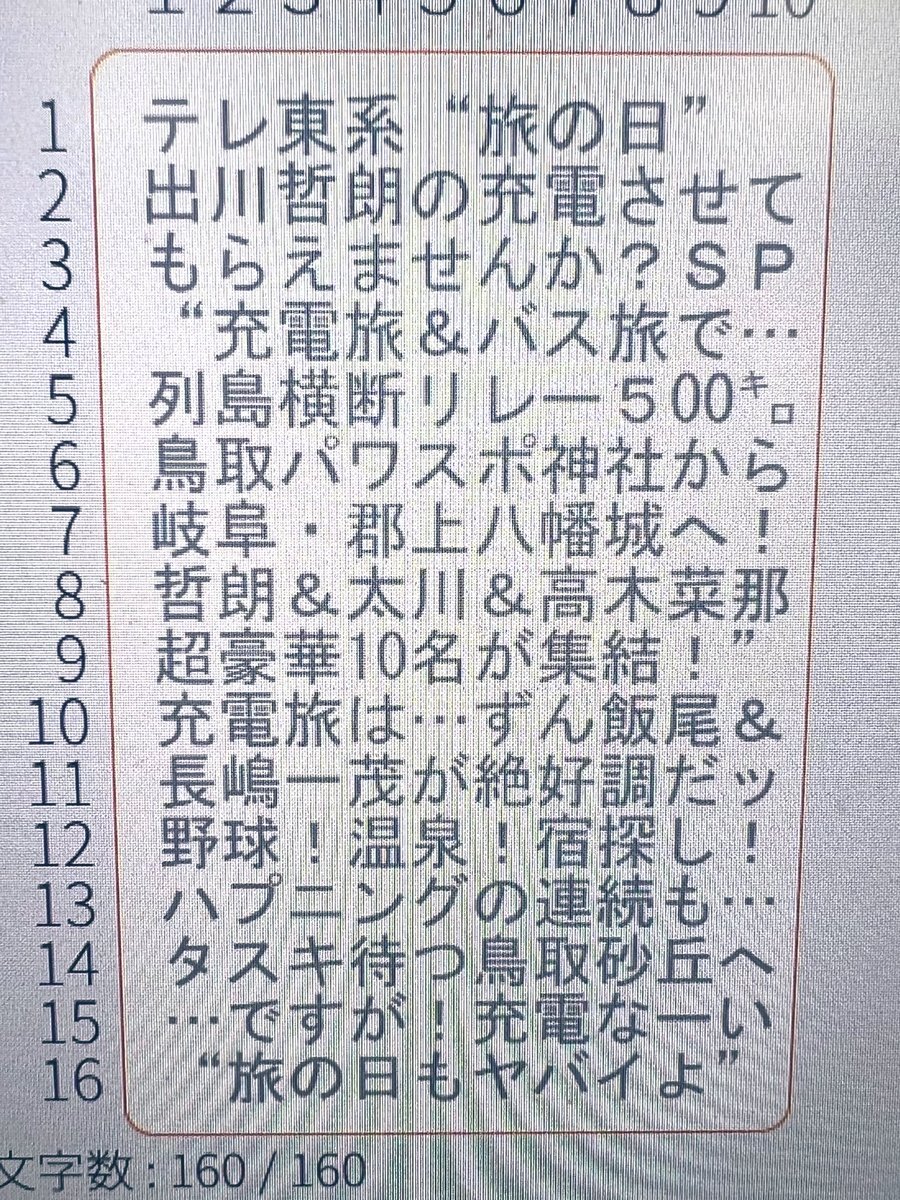 1 2 3 4 5 6 7 8 9 10
1 テレ東系“旅の日”
2 出川哲朗の充電させて
3 もらえませんか？ＳＰ
4 “充電旅＆バス旅で…
5 列島横断リレー５00㌔
6 鳥取パワスポ神社から
7 岐阜・郡上八幡城へ！
8 哲朗＆太川＆高木菜那
9 超豪華10名が集結！”
10 充電旅は…ずん飯尾＆
11 長嶋一茂が絶好調だッ
12 野球！温泉！宿探し！
13 ハプニングの連続も…
14 タスキ待つ鳥取砂丘へ
15 …ですが！充電なーい
16 “旅の日もヤバイよ”
文字数 : 160 / 160